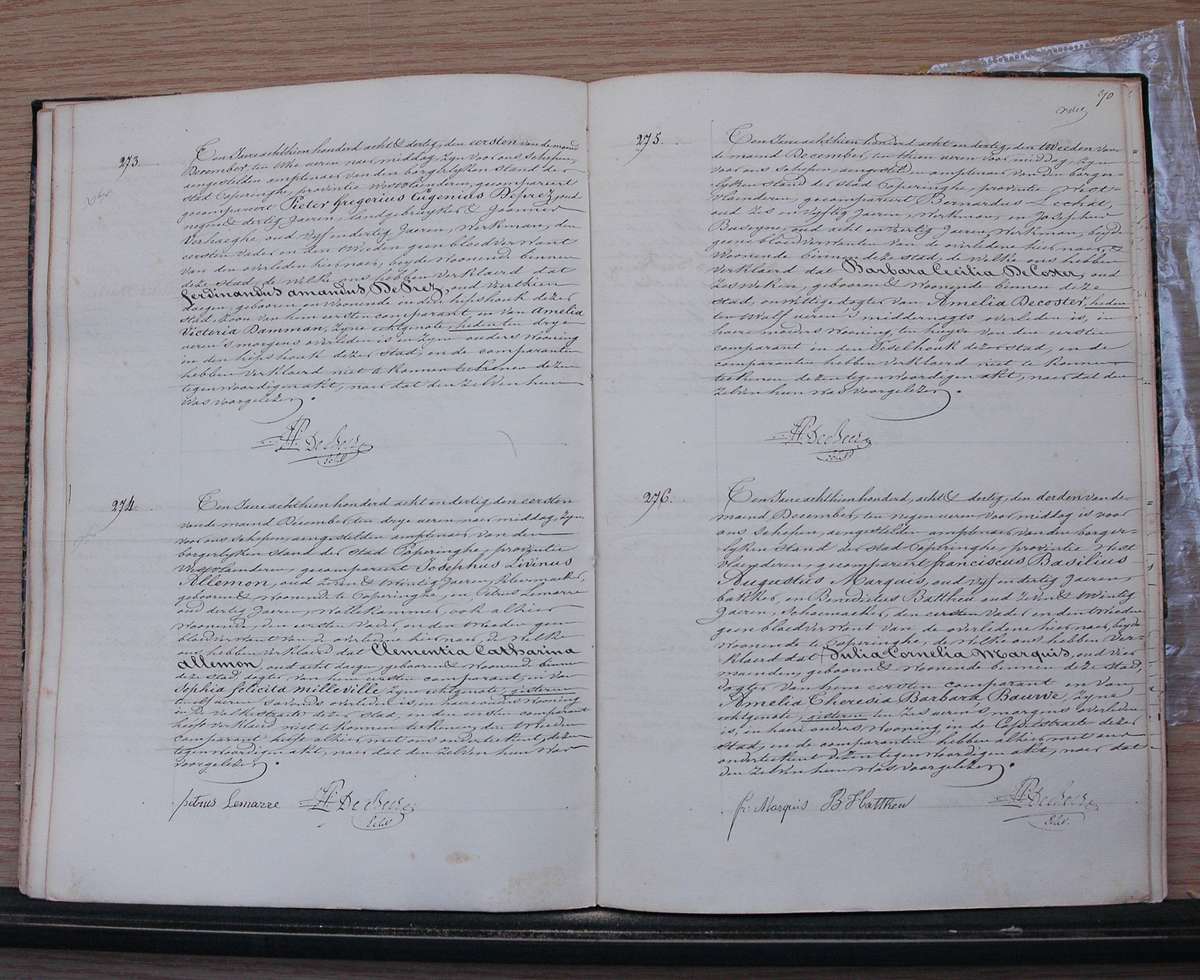 273.
Ten Jaere achthien honderd acht & dertig, den eersten van de maand
December, ten elke ueren naer middag, zyn voor ons schepen,
aengestelden amptenaer van den borgerlyken stand der
stad Poperinghe, provintie Westvlanderen, gecompareert
gecompareert Pieter Gregorius Eugenius Deprez, oud
negen & dertig Jaeren, landgebruyker & Joannes
Verhaeghe oud vyf en dertig Jaeren, werkman, den
eersten vader en den tweeden geen bloedverwant
van den overleden hier naer, beyde woonende binnen
deze stad, de welke ons hebben verklaerd dat
Ferdinandus amandus De Prez, oud
daegen, geboren en woonende in den hipshoek dezer
stad, zoon van hem eersten comparant en van Amelia
Victoria Damman, zyne echtgenote, heden ten drye
ueren 's morgens overleden is in zyne ouders wooning
in den hipshoek dezer stad, en de comparanten
hebben verklaerd niet te konnen teekenen dezen
tegenwoordigen akt, naer dat den zelven hun
was voorgelezen.
274.
Ten Jaere achthien honderd acht en dertig den eersten
van de maand December, ten drye ueren naer middag, zyn
voor ons schepen, aengestelden amptenaer van den
borgerlyken stand der stad Poperinghe, provintie
Westvlanderen, gecompareert Josephus Livinus
Allemon, oud zeven & twintig Jaeren,
geboren & woonende te Poperinghe, en Petrus Lemarre
oud dertig Jaeren, ook alhier
woonende, den eersten vader en den tweeden geen
bloedverwant van de overledene hier naer, de welke
ons hebben verklaerd dat Clementia Catharina
allemon, oud acht daegen, geboren & woonende binnen
deze stad, dogter van hem eersten comparant, en van
Sophia felicita Milleville zyne echtgenote, gisteren
ten elf ueren 's avonds overleden is, in haere ouders wooning
in de straete dezer stad, en den eersten comparant
heeft verklaerd niet te konnen teekenen, den tweeden
comparant heeft alhier met ons onderteekent, dezen
tegenwoordigen akt, naer dat den zelven hun was
voorgelezen.
petrus Lemarre
70
275.
Ten Jaere achthien honderd acht en dertig, den tweeden van
de maand December, ten thien ueren voor middag, zyn
voor ons schepen, aengestelden amptenaer van den borger-
lyken stand der stad Poperinghe, provintie West-
vlanderen, gecompareert Bernardus
oud zes en vyftig Jaeren, werkman, en Josephus
oud acht en veertig Jaeren, werkman, beyde
geene bloedverwanten van de overledene hier naer &
woonende binnen deze stad, de welke ons hebben
verklaerd dat Barbara Cecilia De Coster, oud
zes weken, geboren & woonende binnen deze
stad, onwettige dogter van Amelia Decoster, heden
ten twalf ueren 's middernagts overleden is, in
haere moeders wooning, ten huyze van den eersten
comparant in den Eeselhoek dezer stad, en de
comparanten hebben verklaerd niet te konnen
teekenen, dezen tegenwoordigen akt, naer dat den
zelven hun was voorgelezen.
276.
Ten Jaere achthien honderd, acht & dertig, den derden van de
maand December, ten negen ueren voor middag is voor
ons schepen, aengestelden amptenaer van den borger-
lyken stand der stad Poperinghe, provintie West
vlanderen, gecompareert franciscus Basilius
Augustus Marquis, oud vyf en dertig Jaeren,
bakker, en Benedictus Battheu oud zeven & twintig
Jaeren, schoenmaeker, den eersten vader en den tweeden
geen bloedverwent van de overledene hier naer, beyde
woonende te Poperinghe, de welke ons hebben ver-
klaerd dat Julia Cornelia Marquis, oud vier
maenden, geboren & woonende binnen deze stad,
dogter van hem eersten comparant en van
Amelia Theresia Barbara Baurve, zyne
echtgenote, gisteren ten zes ueren 's morgens overleden
is, in haere ouders wooning in de Gasstraete dezer
stad, en de comparanten hebben alhier met ons
onderteekent dezen tegenwoordigen akt, naer dat
den zelven hun was voorgelezen.
fr Marquis B Battheu